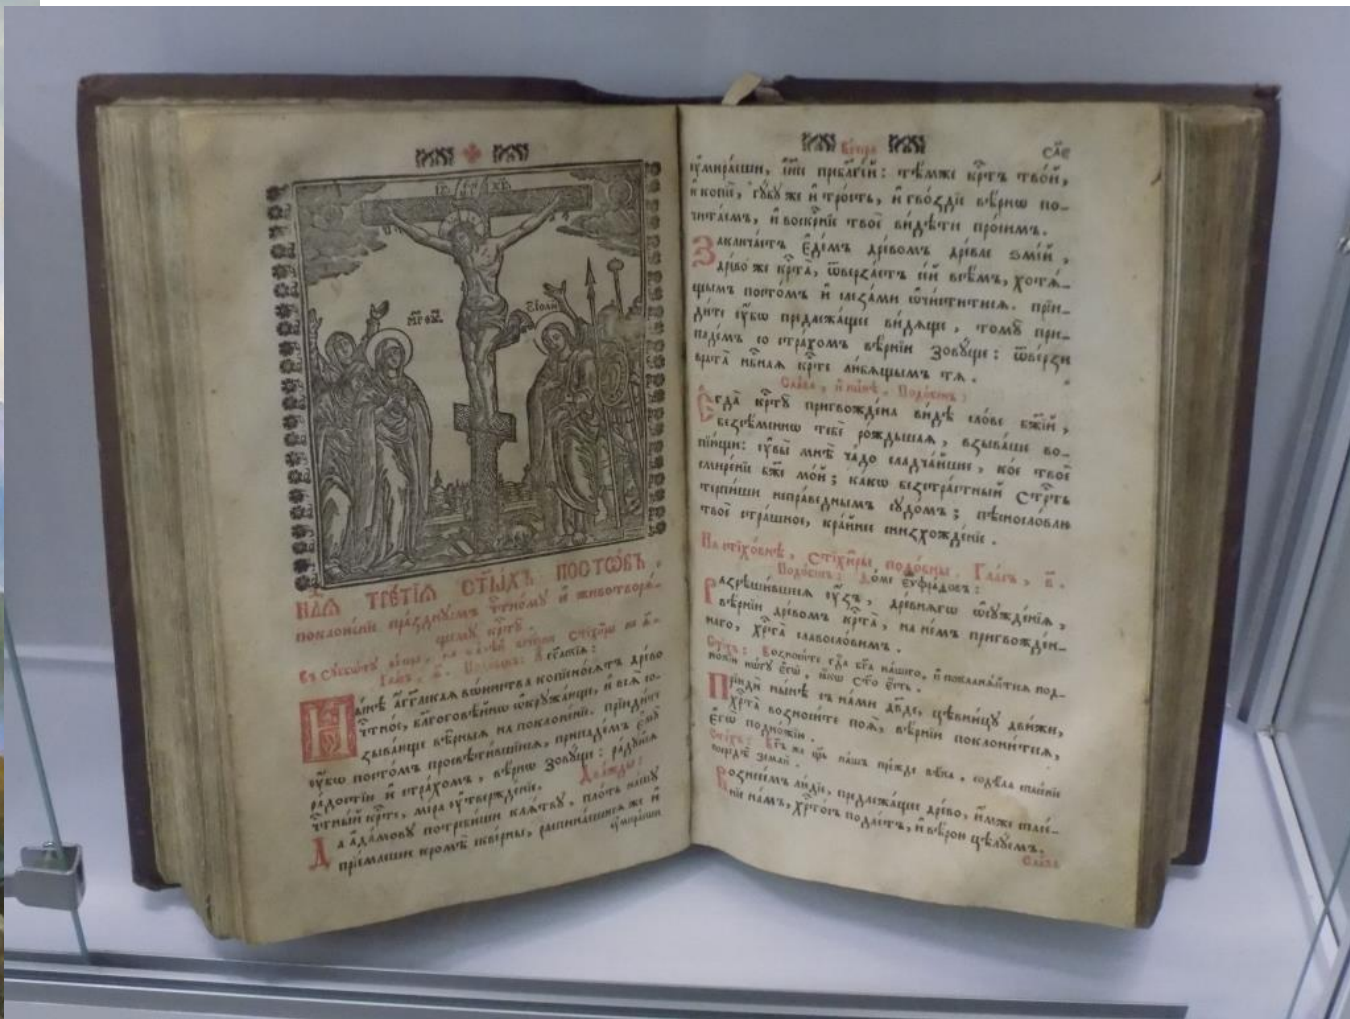 І҃С Х҃С
НДѦ ТРЕ́ТІѦ СТ҃ЫХЪ ПОСТѠ́ВЪ,
поклоне́нїе пра́зднꙋемъ чⷭ҇тно́мꙋ и҆ животворѧ́-
щемꙋ крⷭ҇тꙋ̀
Въ сꙋббѡ́тꙋ стїхи̑ры
Гла́съ, Подо́бенъ:
Ны́нѣ а҆́гг҃льскаѧ вѡ́инства копїено́сѧтъ дре́во
чⷭ҇тно́е, бл҃гоговѣ́йнѡ ѡ҆крꙋжа́юще, и҆ всѧ̑ со-
зыва́юще вѣ̑рныѧ на поклоне́нїе. прїиди́те
ᲂу҆́бѡ посто́мъ просвѣти́вшїисѧ, припаде́мъ є҆мꙋ̀
ра́достїю и҆ стра́хомъ, вѣ́рнѡ зовꙋ́ще: ра́дꙋйсѧ
чⷭ҇тны́й крⷭ҇те, мі́ра ᲂу҆твержде́нїе. Два́жды:
Да а҆да́мовꙋ потреби́ши клѧ́твꙋ, пло́ть на́шꙋ
прїе́млеши кромѣ̀ скве́рны, распина́ешисѧ же и҆
ᲂу҆мира́еши
ᲂу҆мира́еши, і҆и҃се пребл҃гі́й: тѣ́мже крⷭ҇тъ тво́й,
и҆ копїѐ, гꙋ́бꙋ же и҆ тро́сть, и҆ гво́здїе вѣ́рнѡ по-
чита́емъ, и҆ воскрⷭ҇нїе твоѐ ви́дѣти про́симъ.
Заключа́етъ є҆де́мъ дре́вомъ дре́вле ѕмі́й,
дре́во же крⷭ҇та̀, ѿверза́етъ се́й всѣ̑мъ, хотѧ́-
щымъ посто́мъ и҆ слеза́ми ѡ҆чи́ститисѧ. прїи-
ди́те ᲂу҆́бѡ предлежа́щее ви́дѧще, томꙋ̀ при-
паде́мъ со стра́хомъ вѣ́рнїи зовꙋ́ще: ѿве́рзи
врата̀ нбⷭ҇наѧ крⷭ҇те лю́бѧщымъ тѧ̀.
Сла́ва, и҆ ны́нѣ. Подо́бенъ:
Є҆гда̀ крⷭ҇тꙋ̀ пригвожде́на ви́дѣ сло́ве бж҃їй,
безсѣ́меннѡ тебѐ ро́ждшаѧ, взыва́ше во-
пїю́щи: ᲂу҆вы̀ мнѣ̀ ча́до сладча́йшее, ко́е твоѐ
смире́нїе бж҃е мо́й; ка́кѡ безстра́стный стрⷭ҇ть
терпи́ши непра́веднымъ сꙋдо́мъ; пѣсносло́влю
твоѐ стра́шное, кра́йнее снизхожде́нїе.
На стїхо́внѣ, стїхи̑ры подо́бны. Гла́съ, в҃.
Подо́бенъ: До́ме є҆ѵфра́довъ:
Разрѣши́вшесѧ ᲂу҆́зъ, дре́внѧгѡ ѡ҆сꙋжде́нїѧ,
вѣ́рнїи дре́вомъ крⷭ҇та̀, на не́мъ пригвожде́н-
наго, хрⷭ҇та̀ славосло́вимъ.
Сті́хъ: Возноси́те гдⷭ҇а бг҃а на́шего, и҆ покланѧ́йтесѧ под-
но́жїю но́гꙋ є҆гѡ̀, ꙗ҆́кѡ ст҃о є҆́сть.
Прїидѝ ны́нѣ съ на́ми дв҃де, цѣвни́цꙋ дви́жи,
хрⷭ҇та̀ возноси́те поѧ̀, вѣ́рнїи поклони́тесѧ,
є҆гѡ̀ подно́жїи.
Сті́хъ: Бг҃ъ же цр҃ь на́шъ пре́жде вѣ́ка, содѣ́ла спасе́нїе
посредѣ̀ землѝ.
Вознесе́мъ лю́дїе, предлежа́щее дре́во, и҆́мже спасе́-
нїе на́мъ, хрⷭ҇то́съ подае́тъ, и҆ вѣ́рою цѣлꙋ́емъ.
Сла́ва